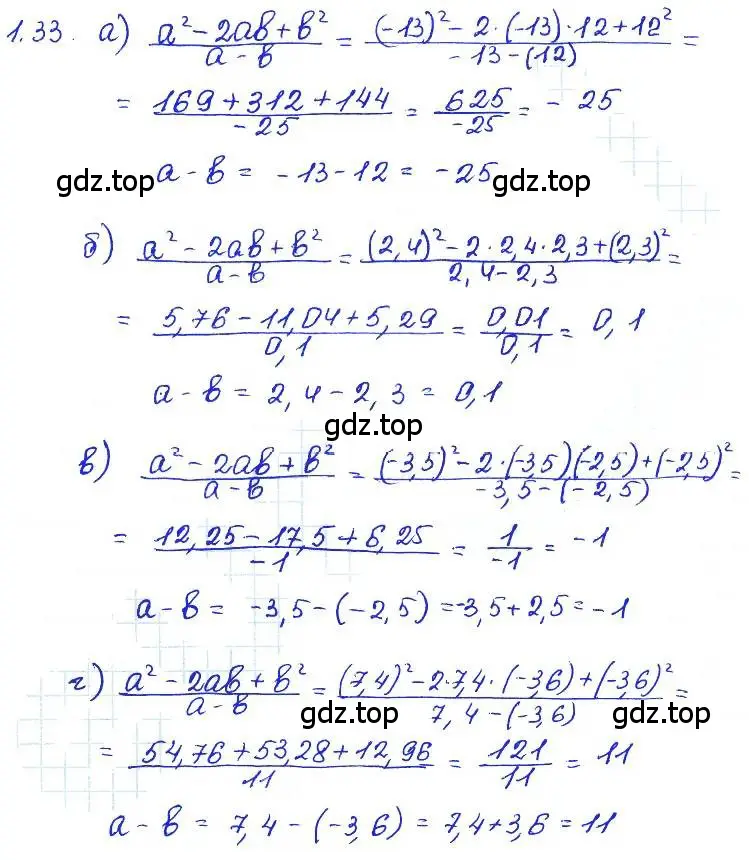 1.33. а) (a² - 2ab + b²)/(a - b) = ((-13)² - 2·(-13)·12 + 12²)/(-13 - (12)) =
= (169 + 312 + 144)/(-25) = 625/(-25) = - 25
gdz.top a - b = -13 - 12 = -25 gdz.top
б) (a² - 2ab + b²)/(a - b) = ((2,4)² - 2·2,4·2,3 + (2,3)²)/(2,4 - 2,3) =
= (5,76 - 11,04 + 5,29)/(0,1) = 0,01/0,1 = 0,1
a - b = 2,4 - 2,3 = 0,1
gdz.top
в) (a² - 2ab + b²)/(a - b) = ((-3,5)² - 2·(-3,5)(-2,5) + (-2,5)²)/(-3,5 - (-2,5)) =
= (12,25 - 17,5 + 6,25)/(-1) = 1/(-1) = -1
a - b = -3,5 - (-2,5) = -3,5 + 2,5 = -1
г) (a² - 2ab + b²)/(a - b) = ((7,4)² - 2·7,4·(-3,6) + (-3,6)²)/(7,4 - (-3,6)) =
gdz.top gdz.top
= (54,76 + 53,28 + 12,96)/11 = 121/11 = 11
a - b = 7,4 - (-3,6) = 7,4 + 3,6 = 11